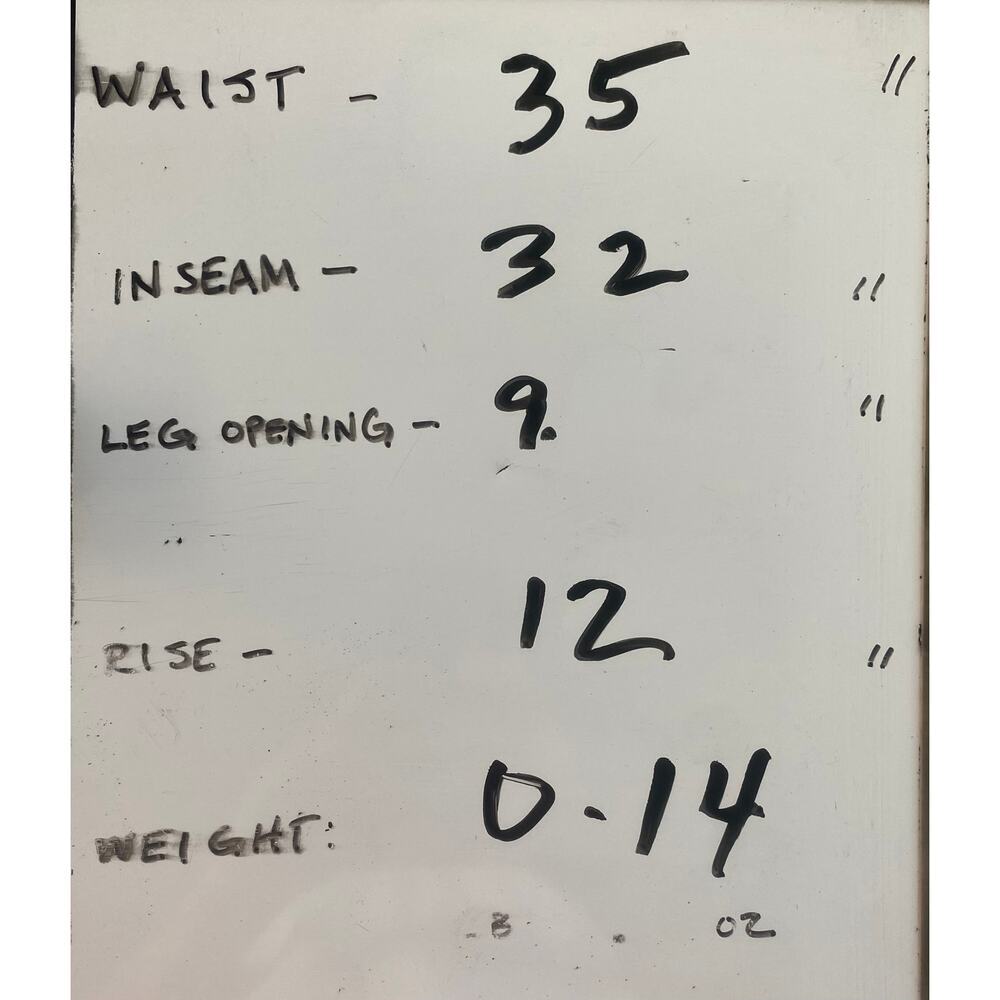 WAIST - 35 "
INSEAM - 32 "
LEG OPENING - 9. "
RISE - 12 "
WEIGHT: 0.14
OZ